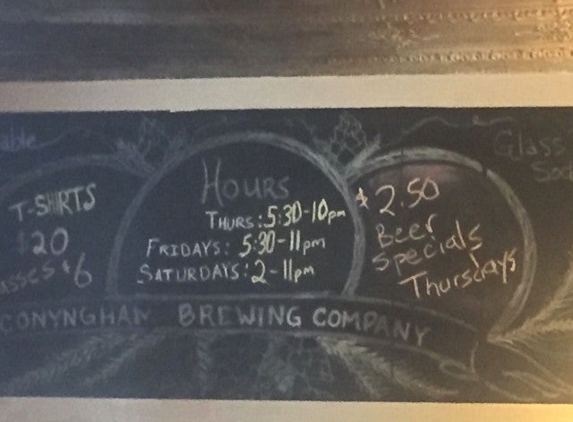 T-SHIRTS
$20
$6
HOURS
THURS: 5:30-10pm
FRIDAYS: 5:30-11pm
SATURDAYS: 2-11pm
$2.50
Beer
Specials
Thursdays
Glass
CONYNGHAM BREWING COMPANY